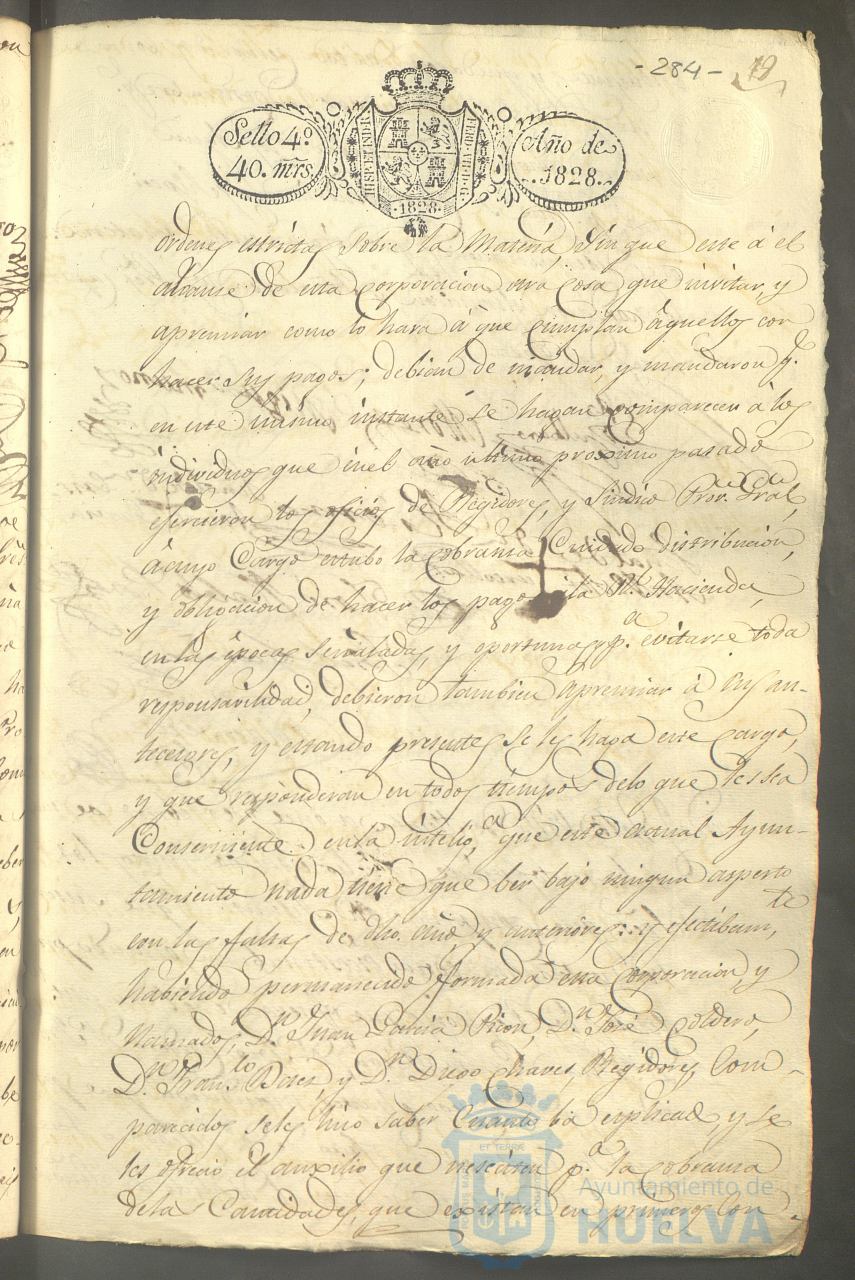 - 284 - 19
Sello 4º
40. mrs.
HISP. ET IND. R
FERD. VII. D. G.
· 1828 ·
Año de
1828.
ordenes estrictas sobre la Materia, sin que este á el
alcanse de esta Corporacion otra Cosa que invitar, y
apremiar como lo hara á que Cumplan áquellos con
hacer sus pagos; debian de mandar, y mandaron q.e
en este mismo instante se hagan Comparecer á los
individuos que enel año ultimo proximo pasado
ejercieron los oficios de Regidores, y Sindico Pror. Gral,
á cuyo Cargo estubo la Cobransa Cuidado distribucion,
y obligacion de hacer los pagos á la Rl. Hacienda,
en las épocas señaladas, y oportunas, y p.a evitarse toda
responsavilidad, debieron tambien apremiar á sus an-
tecesores, y estando presentes se les haga este Cargo,
y que responderan en todos tiempos delo que les sea
Conserniente enla inteligª. que este actual Ayun-
tamiento nada tiene que ber bajo ningun aspecto
con las faltas de dho. año y anteriores: y efectibam.te,
habiendo permanecido formada esta Corporacion, y
llamados, Dn. Juan Garcia Picon, Dn. José Coldero,
Dn. Fran.co Poses, y Dn. Diego Chaves, Regidores, Com-
parecidos seles hiso saber Cuanto ba esplicado, y se
les ofrecio el auxilio que nesesiten p.a la cobransa
delas Cantidades, que existan en primeros Con-
ET TERRAE
Ayuntamiento de
HUELVA